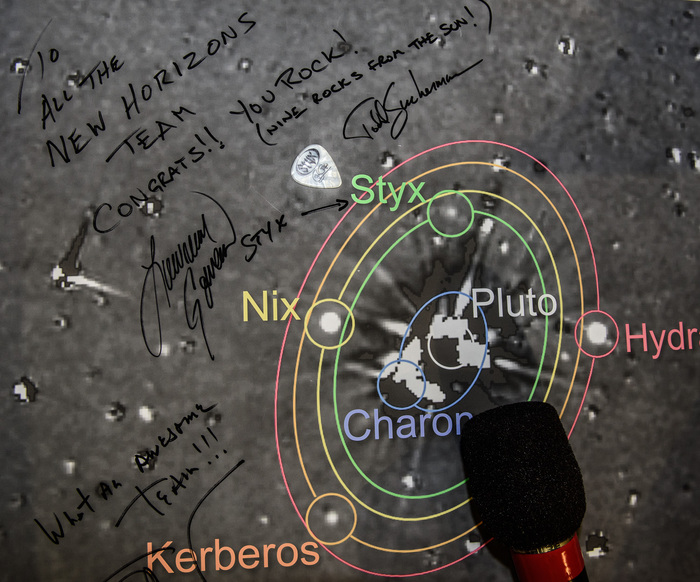 TO
ALL THE
NEW HORIZONS
TEAM
CONGRATS!! YOU ROCK!
(NINE ROCKS FROM THE SUN!)
Todd Sucherman
STYX
Styx
Nix
Pluto
Hydr
Charon
What An Awesome
Team!!!
Kerberos